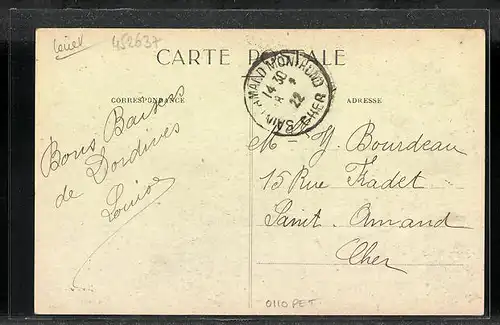 452637
CARTE POSTALE
SAINT-AMAND MONTROND
CHER
14 30
22
CORRESPONDANCE
ADRESSE
Bons Baisers
de Dordives
Louise
M Y Bourdeau
15 Rue Fradet
Saint-Amand
Cher
0110 PET